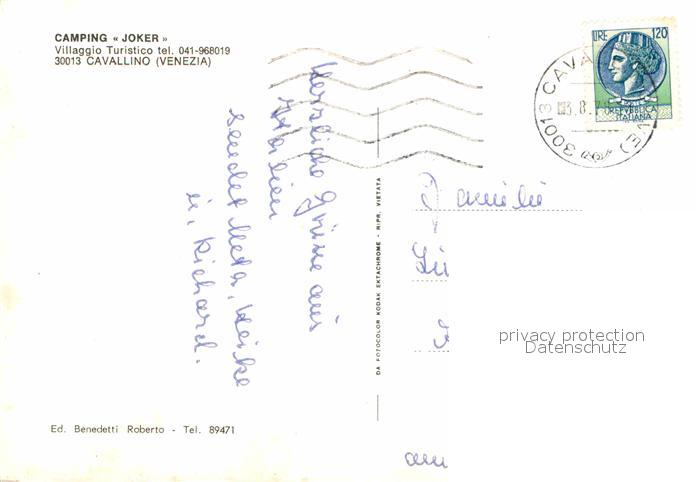 CAMPING « JOKER »
Villaggio Turistico tel. 041-968019
30013 CAVALLINO (VENEZIA)
Herzliche Grüsse aus
Italien
sendet Meta, Heike
u. Richard.
Ed. Benedetti Roberto - Tel. 89471
DA FOTOCOLOR KODAK EKTACHROME - RIPR. VIETATA
LIRE 120
REPVBBLICA
ITALIANA
30013 CAVA
VE)
Familie
privacy protection
Datenschutz